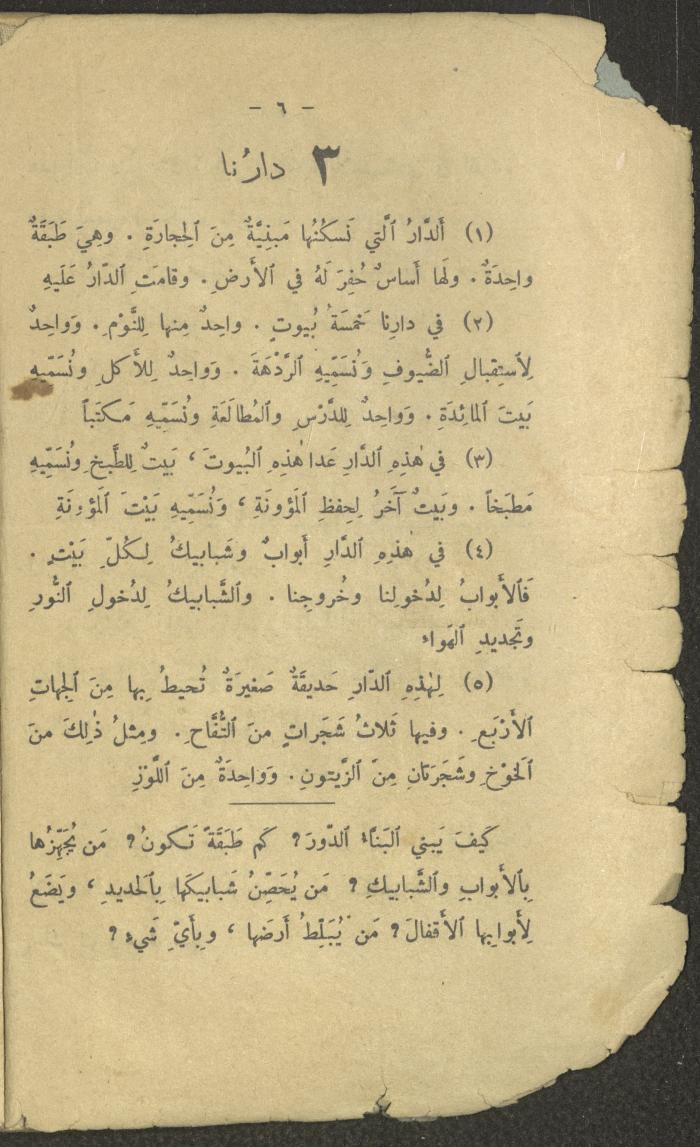 - ٦ -
٣ دارُنا
(١) أَلدَّارُ ٱلَّتي نَسكُنُها مَبنِيَّةٌ مِنَ ٱلحِجارَةِ . وهِيَ طَبَقَةٌ
واحِدَةٌ . ولَها أَساسٌ حُفِرَ لَهُ في ٱلأَرضِ . وقامَتِ ٱلدّارُ عَلَيهِ
(٢) في دارِنا خَمسَةُ بُيوتٍ . واحِدٌ مِنها لِلنَّوْمِ . وَواحِدٌ
لِٱستِقبالِ ٱلضُّيوفِ وَنُسَمِّيهِ ٱلرَّدْهَةَ . وَواحِدٌ لِلأَكلِ ونُسَمّيهِ
بَيتَ ٱلمائِدَةِ . وَواحِدٌ لِلدَّرْسِ وٱلمُطالَعَةِ ونُسَمِّيهِ مَكتَباً
(٣) في هٰذِهِ ٱلدَّارِ عَدا هٰذِهِ ٱلبُيوتَ ، بَيتٌ لِلطَّبخِ ونُسَمِّيهِ
مَطبَخاً . وبَيتٌ آخَرُ لِحِفظِ ٱلمَؤُونَةِ ، وَنُسَمِّيهِ بَيْتَ ٱلمَؤُونَةِ
(٤) في هٰذِهِ ٱلدَّارِ أَبوابٌ وشَبابيكُ لِكُلِّ بَيْتٍ .
فَٱلأَبوابُ لِدُخولِنا وخُروجِنا . وٱلشَّبابيكُ لِدُخولِ ٱلنُّورِ
وتَجديدِ ٱلهَواء
(٥) لِهٰذِهِ ٱلدّارِ حَديقَةٌ صَغيرَةٌ تُحيطُ بِها مِنَ ٱلجِهاتِ
ٱلأَرْبَعِ . وفيها ثَلاثُ شَجَراتٍ مِنَ ٱلتُّفَّاحِ . ومِثلُ ذٰلِكَ مِنَ
ٱلخَوْخِ وشَجَرَتانِ مِنَ ٱلزَّيتونِ . وَواحِدَةٌ مِنَ ٱللَّوْزِ
كَيفَ يَبني ٱلبَنَّاءُ ٱلدّورَ ؟ كَم طَبَقَةً تَكونُ ؟ مَن يُجَهِّزُها
بِٱلأَبوابِ وٱلشَّبابيكِ ؟ مَن يُحَصِّنُ شَبابيكَها بِٱلحَديدِ ، ويَضَعُ
لِأَبوابِها ٱلأَقفالَ ؟ مَن يُبَلِّطُ أَرضَها ، وبِأَيِّ شَيءٍ ؟